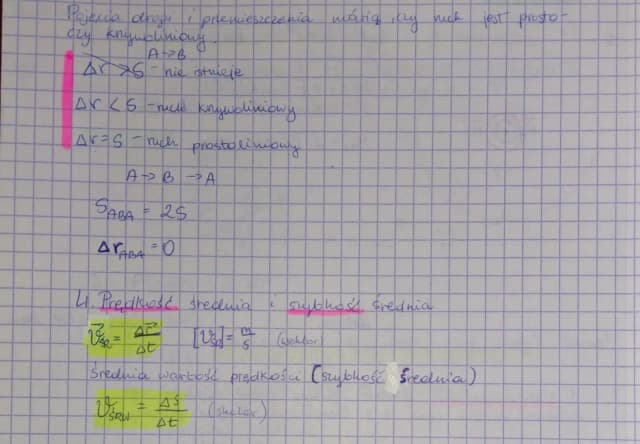 Pojęcia drogi i przemieszczenia mówią, czy ruch jest prosto-
czy krzywoliniowy.
A→B
Δr > S - nie istnieje
Δr < S - ruch krzywoliniowy
Δr = S - ruch prostoliniowy
A → B → A
S_ABA = 2S
Δr_ABA = 0
4. Prędkość średnia i szybkość średnia
v⃗_śr = Δr⃗/Δt [v_śr] = m/s (wektor)
średnia wartość prędkości (szybkość średnia)
v_śrw = Δs/Δt (skalar)